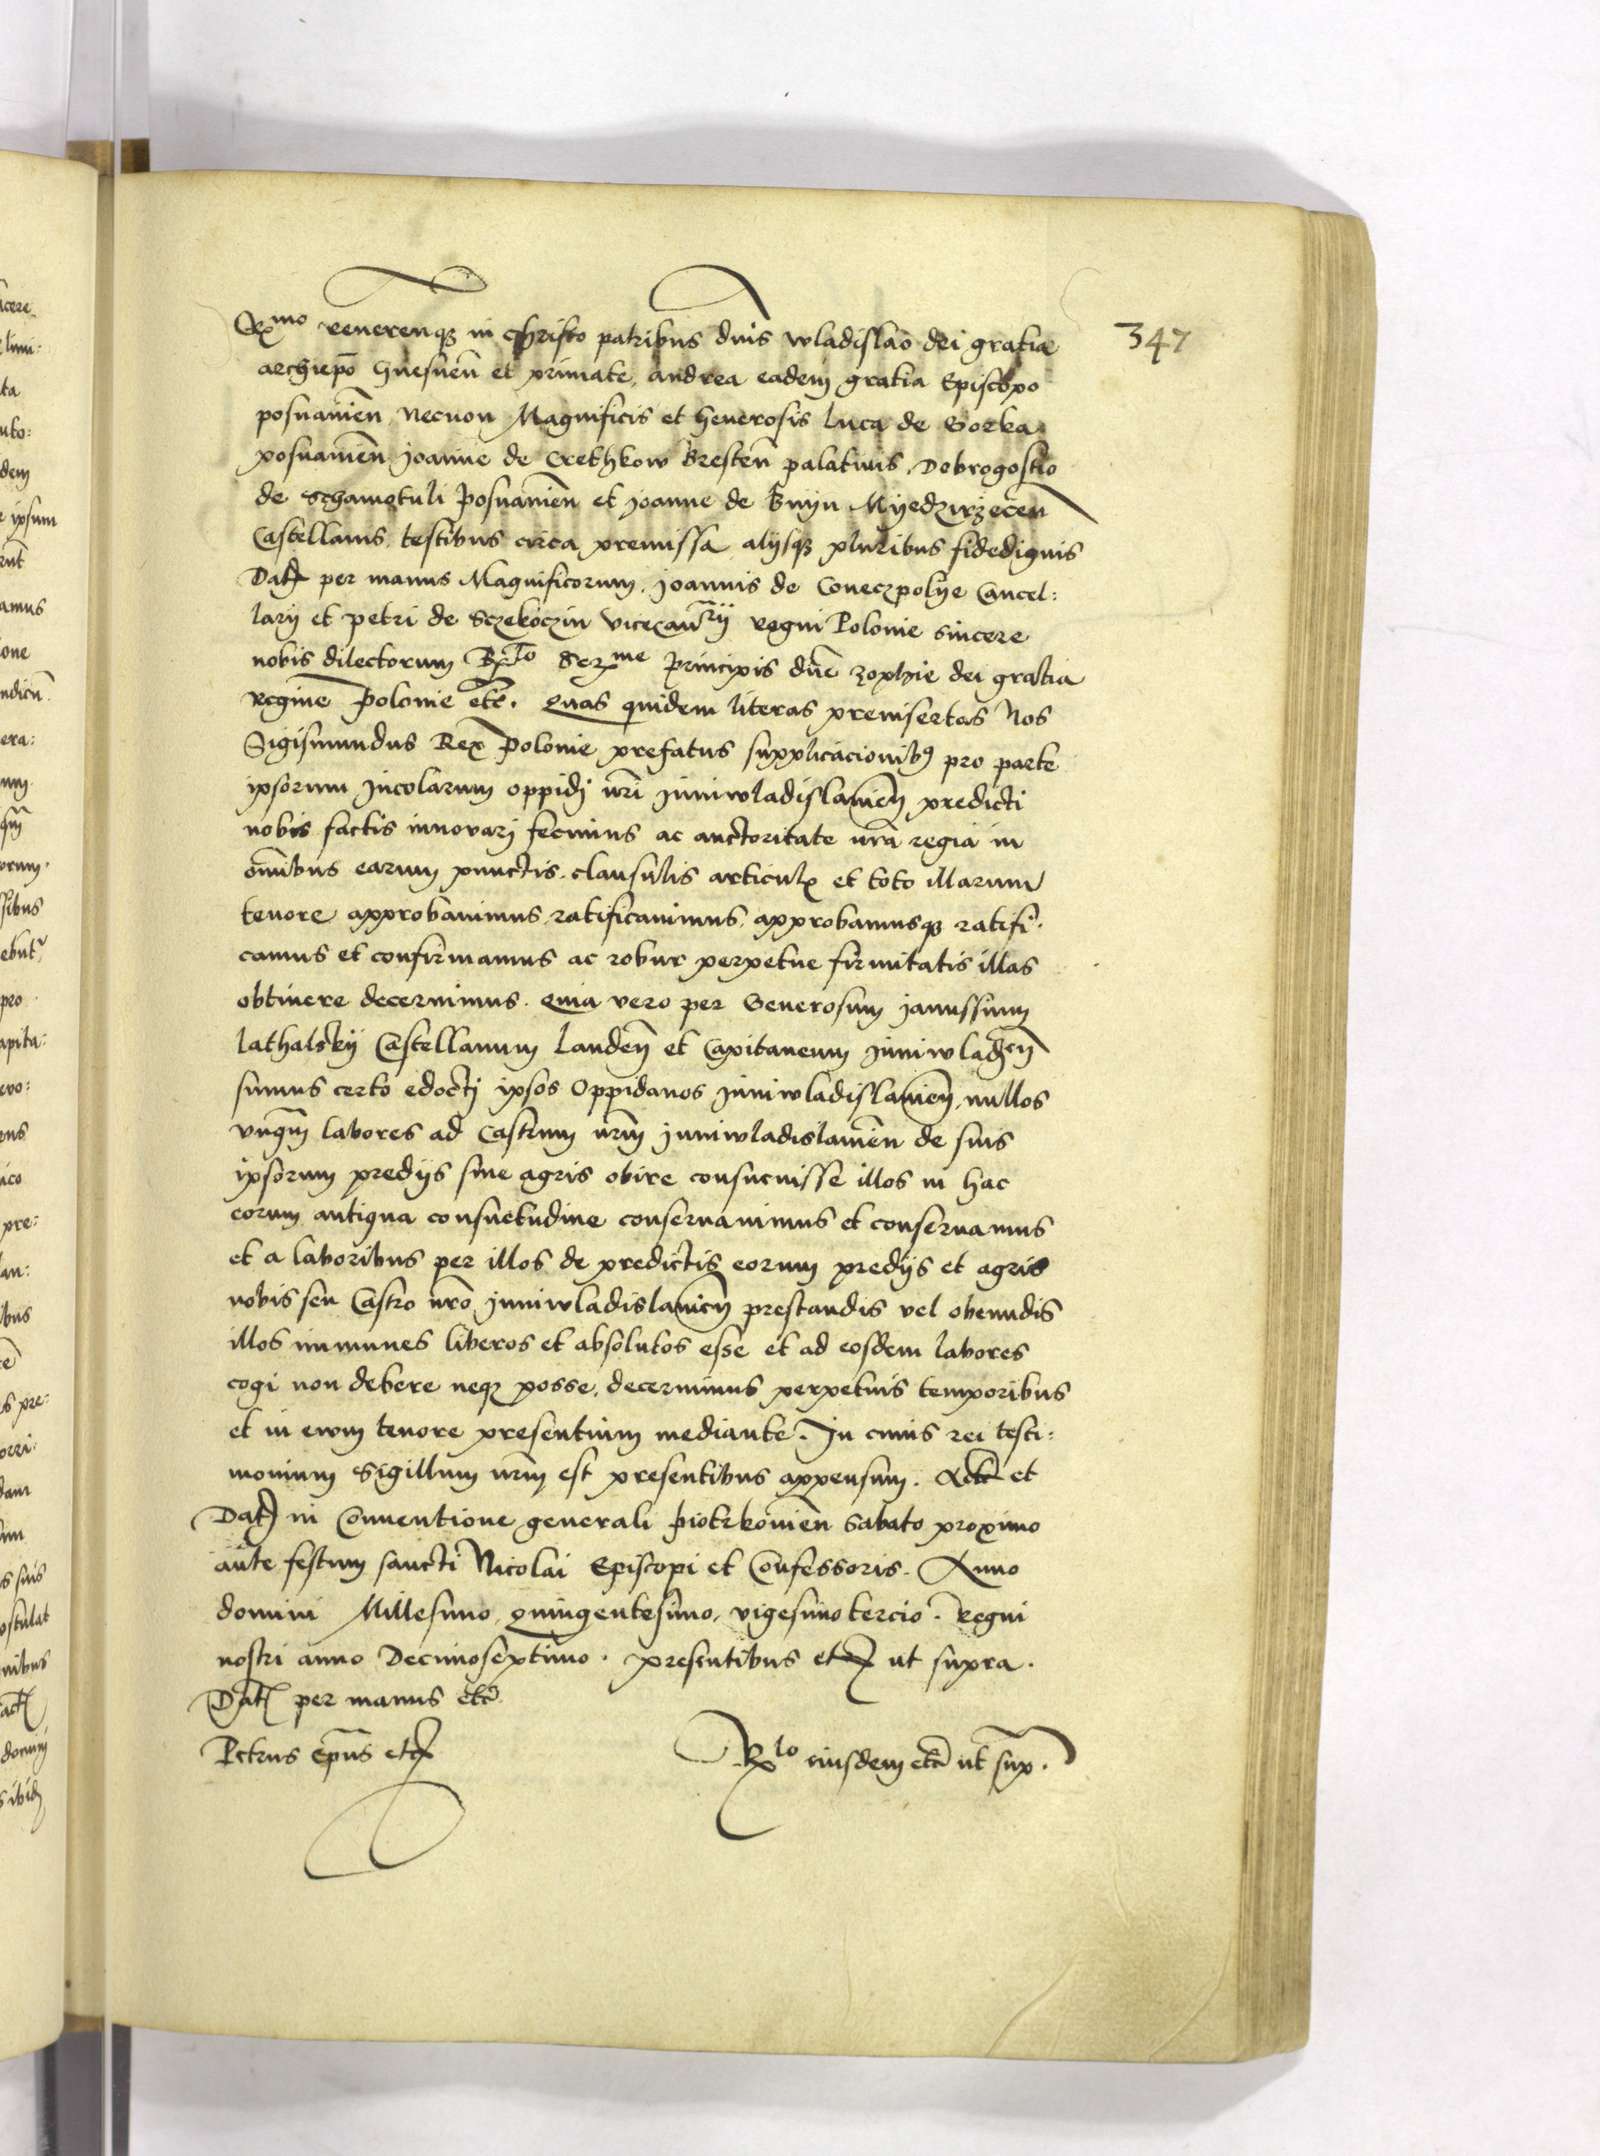 347
Rmo reverenq3 in Christo patribus dnis wladislao dei gratia
archiepo Gnesnen et primate, andrea eadem gratia Episcopo
posnanien Necnon Magnificis et Generosis Luca de Gorka
posnanien Joanne de Crethkow Bresten palatinis, Dobrogostio
de Schamotuli Posnanien et Joanne de Bnyn Myedzirzecen
Castellanis testibus circa premissa alysq3 pluribus fidedignis
Dat per manus Magnificorum Joannis de Coneczpolye Cancel:
lary et petri de Sczekoczin vicecanrij regni Polonie sincere
nobis dilectorum Rlo Serme Principis dne zophie dei gratia
regine Polonie etc. Quas quidem literas preinsertas Nos
Sigismundus Rex Polonie prefatus supplicacionib9 pro parte
ipsorum Incolarum oppidj nri Juniwladislavien predicti
nobis factis innovarj fecimus ac auctoritate nra regia in
omibus earum punctis clausulis articulx et toto illarum
tenore approbavimus ratificavimus, approbamusq3 ratifi
camus et confirmamus ac robur perpetue firmitatis illas
obtinere decernimus. Quia vero per Generosum Janussium
Lathalskij Castellanum Landen et Capitaneum Juniwladen
sumus certo edoctj ipsos Oppidanos Juniwladislavien, nullos
vnqm labores ad Castrum nrm Juniwladislavien de suis
ipsorum predijs sive agris obire consuevisse illos in hac
eorum antiqua consuetudine conservavimus et conservamus
et a laboribus per illos de predictis eorum predijs et agris
nobis seu Castro nro Juniwladislavien prestandis vel obeundis
illos immunes liberos et absolutos esse et ad eosdem labores
cogi non debere neq3 posse, decernimus perpetuis temporibus
et in ewm tenore presentium mediante. In cuius rei testi:
monium Sigillum nrm est presentibus appensum. Act et
Dat in Conventione generali Piotrkovien Sabato proximo
ante festum sancti Nicolai Episcopi et Confessoris. Anno
domini Millesimo quingentesimo, vigesimotercio. Regni
nostri anno Decimoseptimo. presentibus etc ut supra.
Dat per manus etc
Petrus Epus etc
Rlo eiusdem etc ut sup.